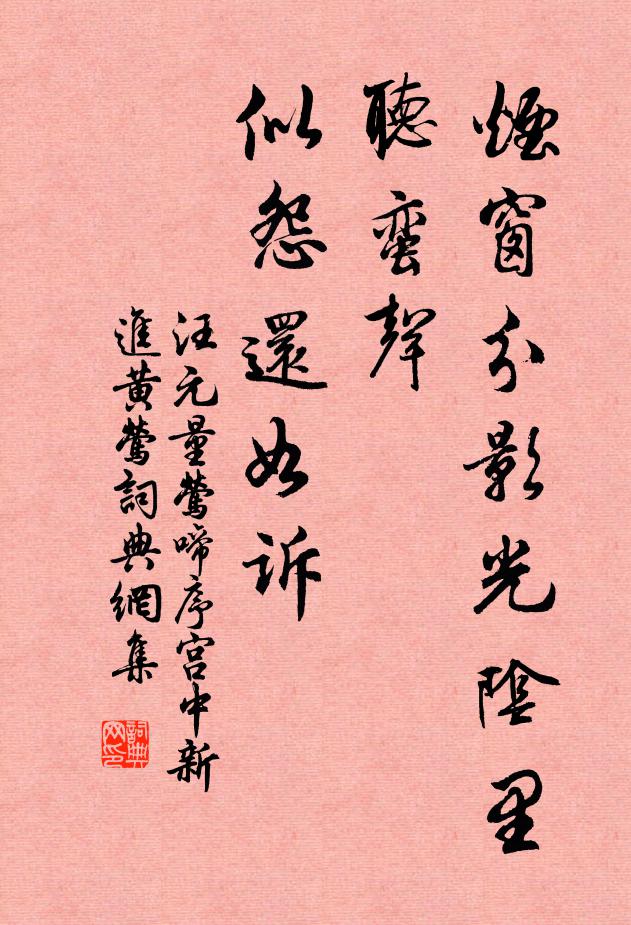 煙窗分影光陰里
聽蛮聲
似怨還如訴
汪元量鶯啼序宮中新
進黃鶯詞典網集
詞典
网印